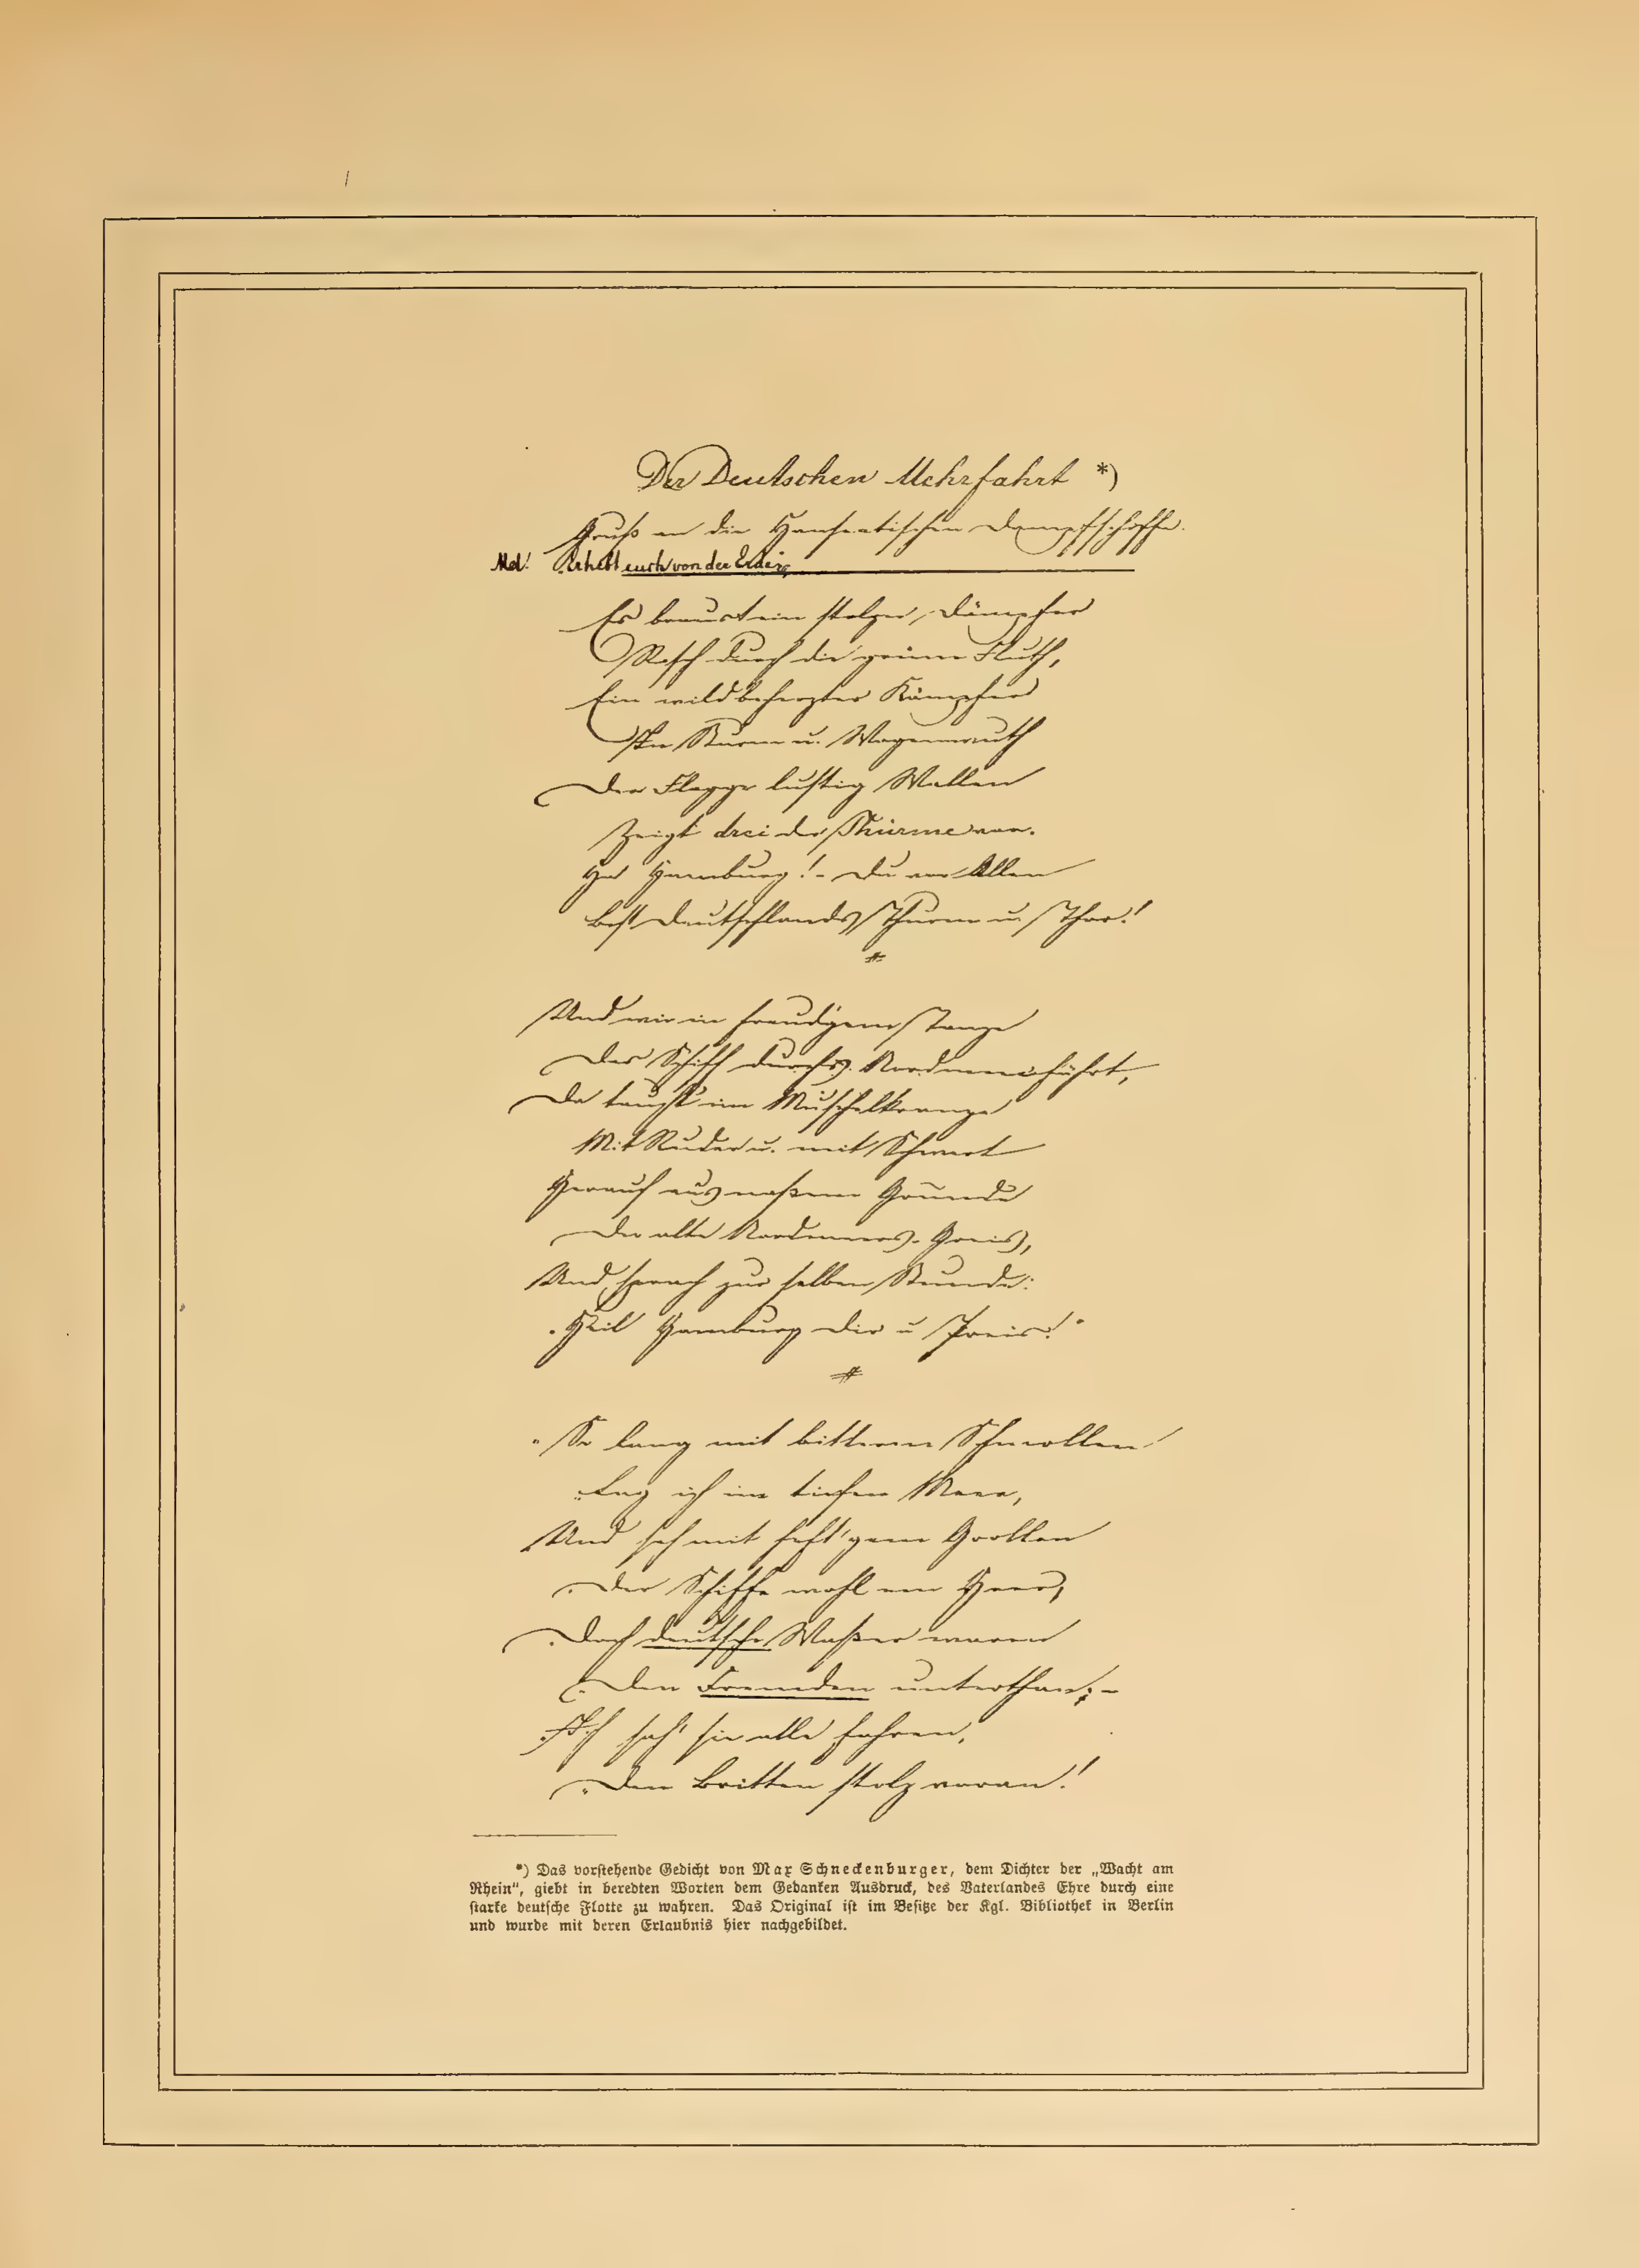 Der Deutschen Mehrfahrt *)
Gruß an die Hanseatischen Dampfschiffe.
Mel: Erhebt euch von der Erde
Es braust ein stolzer Dämpfer
Rasch durch die grüne Fluth,
Ein wildbeherzter Kämpfer
In Sturm u. Wogenwuth
Der Flagge lustig Wallen
Zeigt drei der Thürme vor.
Ha Hamburg! - Du vor Allen
bist Deutschlands Thurm u. Thor!
Und wie in freud'gem Tanze
Das Schiff durchs Nordmeer fährt,
Da taucht im Muschelkranze
Mit Ruder u. mit Schwert
Herauf aus naßem Grunde
Der alte Nordmeers-Greis,
Und sprach zur selben Stunde:
„Heil Hamburg Dir u Preis!"
„So lang mit bitterm Schmollen
„Lag ich im tiefen Meer,
Und sah mit heft'gem Grollen
„Der Schiffe wohl ein Heer,
„Doch deutsche Waßer waren
„Den Fremden unterthan; -
„Ich sah' sie alle fahren,
„Den Britten stolz voran!
*) Das vorstehende Gedicht von Max Schneckenburger, dem Dichter der „Wacht am
Rhein“, giebt in beredten Worten dem Gedanken Ausdruck, des Vaterlandes Ehre durch eine
starke deutsche Flotte zu wahren. Das Original ist im Besitze der Kgl. Bibliothek in Berlin
und wurde mit deren Erlaubnis hier nachgebildet.